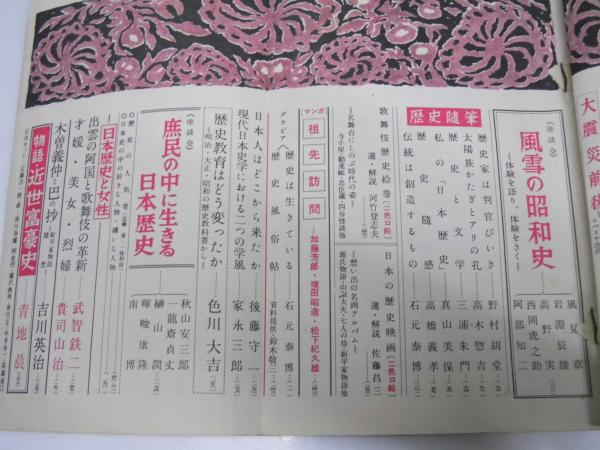 大震災前後
〈座談会〉
風雪の昭和史
―体験を語り、体験をきく―
風見章
岩淵辰雄
高野実
西岡虎之助
阿部知二
歴史随筆
歴史家は判官びいき
野村胡堂
太陽族かたぎとアリの孔
高木惣吉
歴史と文学
三浦朱門
私の「日本歴史」
真山美保
歴史随感
高橋義孝
伝統は創造するもの
石元泰博
歌舞伎歴史絵巻(二色口絵)
選・解説 河竹登志夫
―名舞台にしのぶ時代の姿―
寺小屋・勧進帳・忠臣蔵・四谷怪談他
日本の歴史映画(二色口絵)
選・解説 佐藤昌三
―想い出の名画アルバム―
源氏物語・山椒大夫・七人の侍・新平家物語他
マンガ
祖先訪問
―加藤芳郎・境田昭造・松下紀久雄
グラビア
歴史は生きている
石元泰博
歴史風俗帖
資料提供・鈴木敬三
日本人はどこから来たか
後藤守一
現代日本史学における一つの学風
家永三郎
歴史教育はどう変ったか
―明治・大正・昭和の歴史教科書から―
色川大吉
〈座談会〉
庶民の中に生きる
日本歴史
秋山安三郎
一龍斎貞丈
榊山潤
暉峻康隆
南博
日本歴史と女性
出雲の阿国と歌舞伎の革新
武智鉄二
才媛・美女・烈婦
貴司山治
木曽義仲と巴の抄
吉川英治
物語
近世富豪史
青地晨